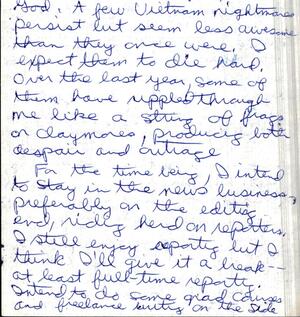 God. A few Vietnam nightmares
persist but seem less awesome
than they once were. I
expect them to die hard.
Over the last year, some of
them have rippled through
me like a string of frags
or claymores, producing both
despair and outrage
For the time being, I intend
to stay in the news business,
preferably on the editing
end, riding herd on reporters.
I still enjoy reporting but I
think I'll give it a break--
at least full-time reporting.
Intend to do some grad courses
and freelance writing on the side